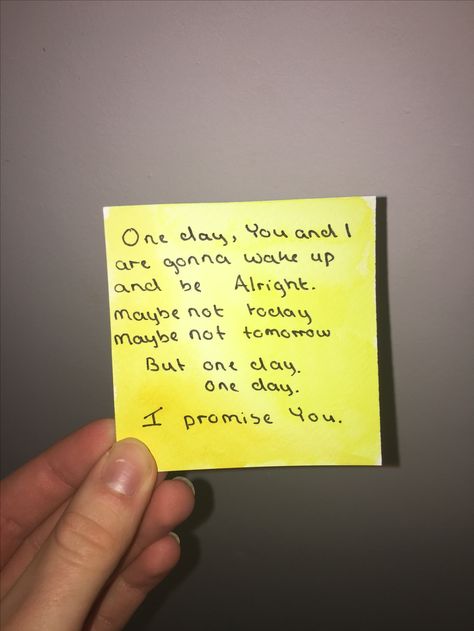 One day, You and I
are gonna wake up
and be Alright.
maybe not today
maybe not tomorrow
But one day.
one day.
I promise You.